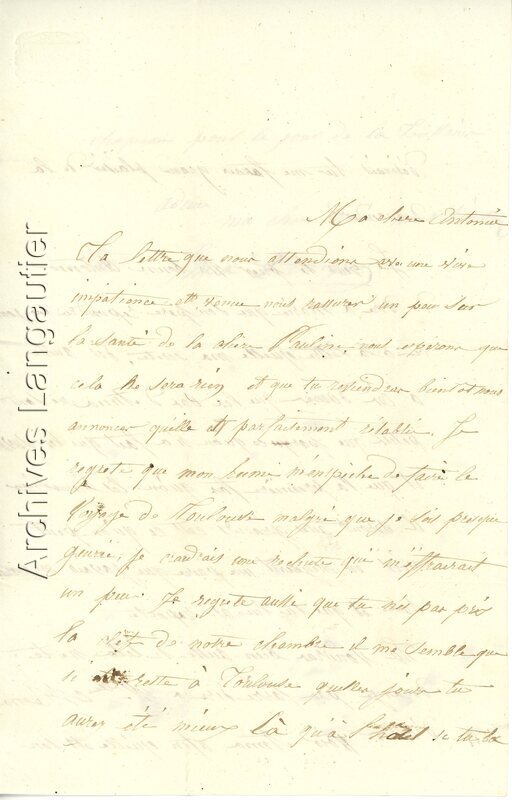 Ma chere Antonie
Ta lettre que nous attendions avec une vive
impatience est venue nous rassurer un peu sur
la santé de la chere Pauline, nous esperons que
cela ne sera rien et que tu reviendras bientot nous
annoncer qu'elle est parfaitement rétablie. Je
regrete que mon m'enpeche de faire le
voyage de Toulouse malgré que je sois presque
gueri, je craidrais une rechute qui m'effrairait
un peu. Je regrete aussi que tu n'es pas pris
la clef de notre chambre il me semble que
si à Toulouse quelques jours tu
aures été mieux là qu'à l'hotel si tu la
Archives Langautier